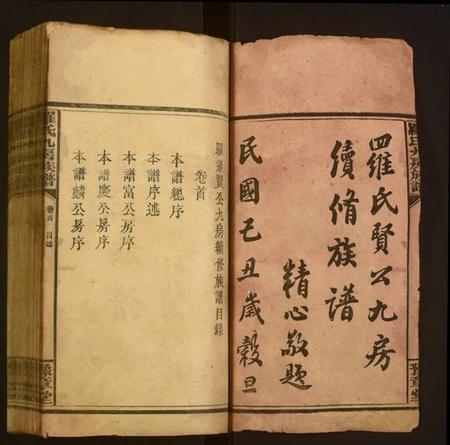 羅氏九房族譜
豫章堂
羅氏賢公九房
續脩族譜
精心敬題
民國己丑歲穀旦
羅賢公九房續修族譜目錄
卷首
本譜總序
本譜序述
本譜富公房序
本譜慶公房序
本譜麟公房序
羅氏九房族譜
卷首
目錄
豫章堂